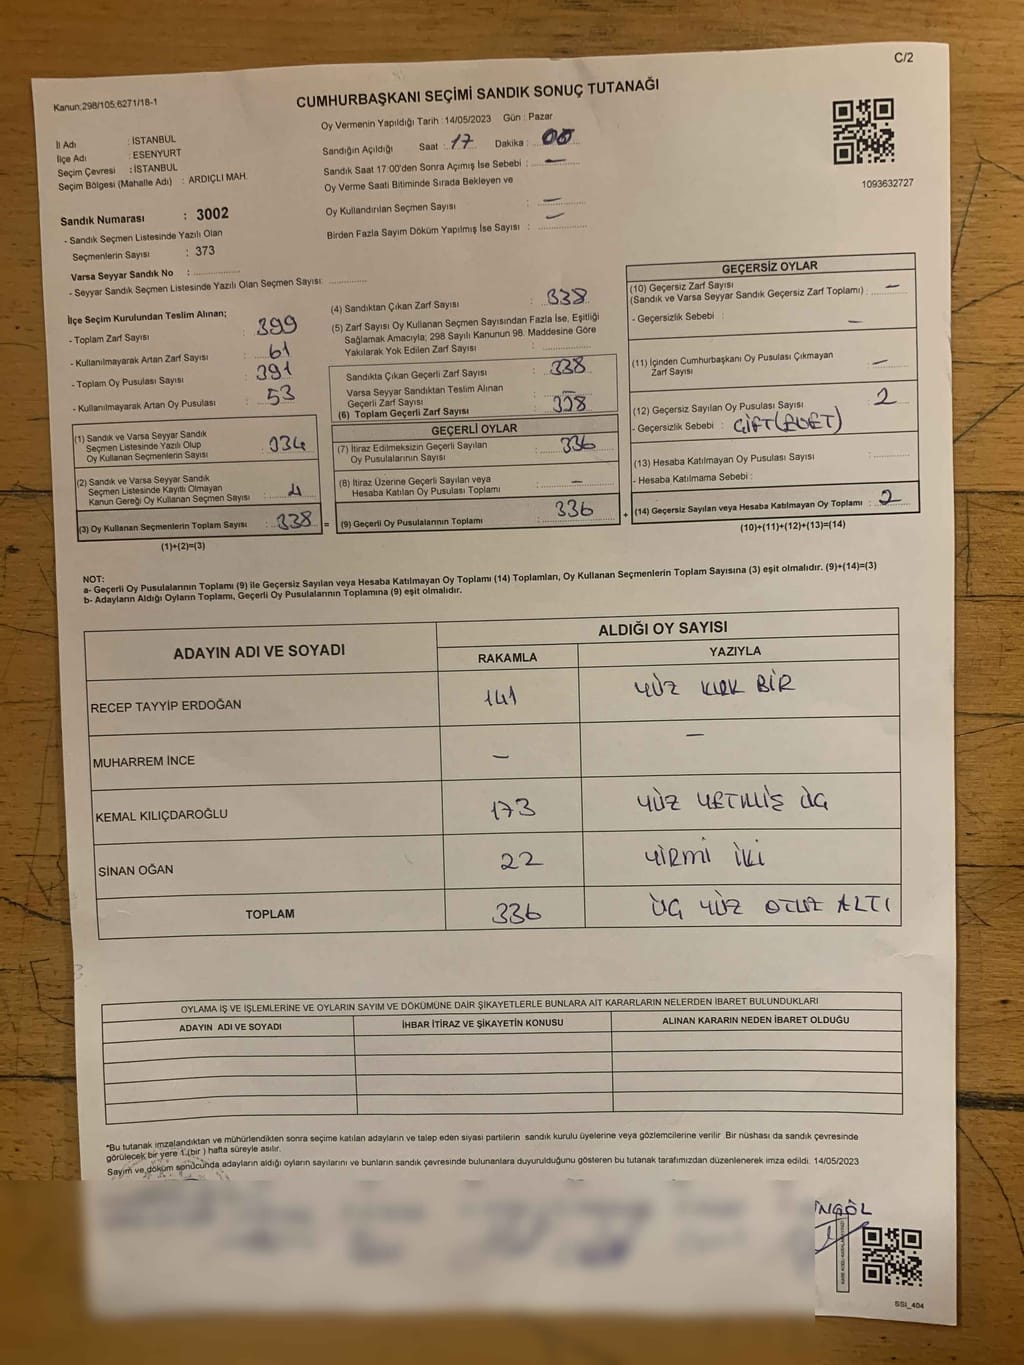 C/2
Kanun:298/105;6271/18-1
CUMHURBAŞKANI SEÇİMİ SANDIK SONUÇ TUTANAĞI
Oy Vermenin Yapıldığı Tarih : 14/05/2023 Gün : Pazar
İl Adı : İSTANBUL
İlçe Adı : ESENYURT
Seçim Çevresi : İSTANBUL
Seçim Bölgesi (Mahalle Adı) : ARDIÇLI MAH.
Sandığın Açıldığı Saat : 17 Dakika : 00
Sandık Saat 17:00'den Sonra Açımış İse Sebebi : —
Oy Verme Saati Bitiminde Sırada Bekleyen ve
Oy Kullandırılan Seçmen Sayısı : —
Birden Fazla Sayım Döküm Yapılmış İse Sayısı : —
1093632727
Sandık Numarası : 3002
- Sandık Seçmen Listesinde Yazılı Olan
Seçmenlerin Sayısı : 373
Varsa Seyyar Sandık No :
- Seyyar Sandık Seçmen Listesinde Yazılı Olan Seçmen Sayısı:
İlçe Seçim Kurulundan Teslim Alınan;
- Toplam Zarf Sayısı : 399
- Kullanılmayarak Artan Zarf Sayısı : 61
- Toplam Oy Pusulası Sayısı : 391
- Kullanılmayarak Artan Oy Pusulası : 53
(1) Sandık ve Varsa Seyyar Sandık
Seçmen Listesinde Yazılı Olup
Oy Kullanan Seçmenlerin Sayısı : 334
(2) Sandık ve Varsa Seyyar Sandık
Seçmen Listesinde Kayıtlı Olmayan
Kanun Gereği Oy Kullanan Seçmen Sayısı : 4
(3) Oy Kullanan Seçmenlerin Toplam Sayısı : 338 =
(1)+(2)=(3)
(4) Sandıktan Çıkan Zarf Sayısı : 338
(5) Zarf Sayısı Oy Kullanan Seçmen Sayısından Fazla İse, Eşitliği
Sağlamak Amacıyla; 298 Sayılı Kanunun 98. Maddesine Göre
Yakılarak Yok Edilen Zarf Sayısı :
Sandıkta Çıkan Geçerli Zarf Sayısı : 338
Varsa Seyyar Sandıktan Teslim Alınan
Geçerli Zarf Sayısı : —
(6) Toplam Geçerli Zarf Sayısı : 338
GEÇERLİ OYLAR
(7) İtiraz Edilmeksizin Geçerli Sayılan
Oy Pusulalarının Sayısı : 336
(8) İtiraz Üzerine Geçerli Sayılan veya
Hesaba Katılan Oy Pusulası Toplamı : —
(9) Geçerli Oy Pusulalarının Toplamı : 336 +
GEÇERSİZ OYLAR
(10) Geçersiz Zarf Sayısı
(Sandık ve Varsa Seyyar Sandık Geçersiz Zarf Toplamı) : —
- Geçersizlik Sebebi : —
(11) İçinden Cumhurbaşkanı Oy Pusulası Çıkmayan
Zarf Sayısı : —
(12) Geçersiz Sayılan Oy Pusulası Sayısı : 2
- Geçersizlik Sebebi : ÇİFT(EVET)
(13) Hesaba Katılmayan Oy Pusulası Sayısı :
- Hesaba Katılmama Sebebi :
(14) Geçersiz Sayılan veya Hesaba Katılmayan Oy Toplamı : 2
(10)+(11)+(12)+(13)=(14)
NOT:
a- Geçerli Oy Pusulalarının Toplamı (9) ile Geçersiz Sayılan veya Hesaba Katılmayan Oy Toplamı (14) Toplamları, Oy Kullanan Seçmenlerin Toplam Sayısına (3) eşit olmalıdır. (9)+(14)=(3)
b- Adayların Aldığı Oyların Toplamı, Geçerli Oy Pusulalarının Toplamına (9) eşit olmalıdır.
ADAYIN ADI VE SOYADI
ALDIĞI OY SAYISI
RAKAMLA YAZIYLA
RECEP TAYYİP ERDOĞAN 141 YÜZ KIRK BİR
MUHARREM İNCE — —
KEMAL KILIÇDAROĞLU 173 YÜZ YETMİŞ ÜÇ
SİNAN OĞAN 22 YİRMİ İKİ
TOPLAM 336 ÜÇ YÜZ OTUZ ALTI
OYLAMA İŞ VE İŞLEMLERİNE VE OYLARIN SAYIM VE DÖKÜMÜNE DAİR ŞİKAYETLERLE BUNLARA AİT KARARLARIN NELERDEN İBARET BULUNDUKLARI
ADAYIN ADI VE SOYADI İHBAR İTİRAZ VE ŞİKAYETİN KONUSU ALINAN KARARIN NEDEN İBARET OLDUĞU
*Bu tutanak imzalandıktan ve mühürlendikten sonra seçime katılan adayların ve talep eden siyasi partilerin sandık kurulu üyelerine veya gözlemcilerine verilir. Bir nüshası da sandık çevresinde
görülecek bir yere 1 (bir ) hafta süreyle asılır.
Sayım ve döküm sonucunda adayların aldığı oyların sayılarını ve bunların sandık çevresinde bulunanlara duyurulduğunu gösteren bu tutanak tarafımızdan düzenlenerek imza edildi. 14/05/2023
İNGÖL
SSI_404